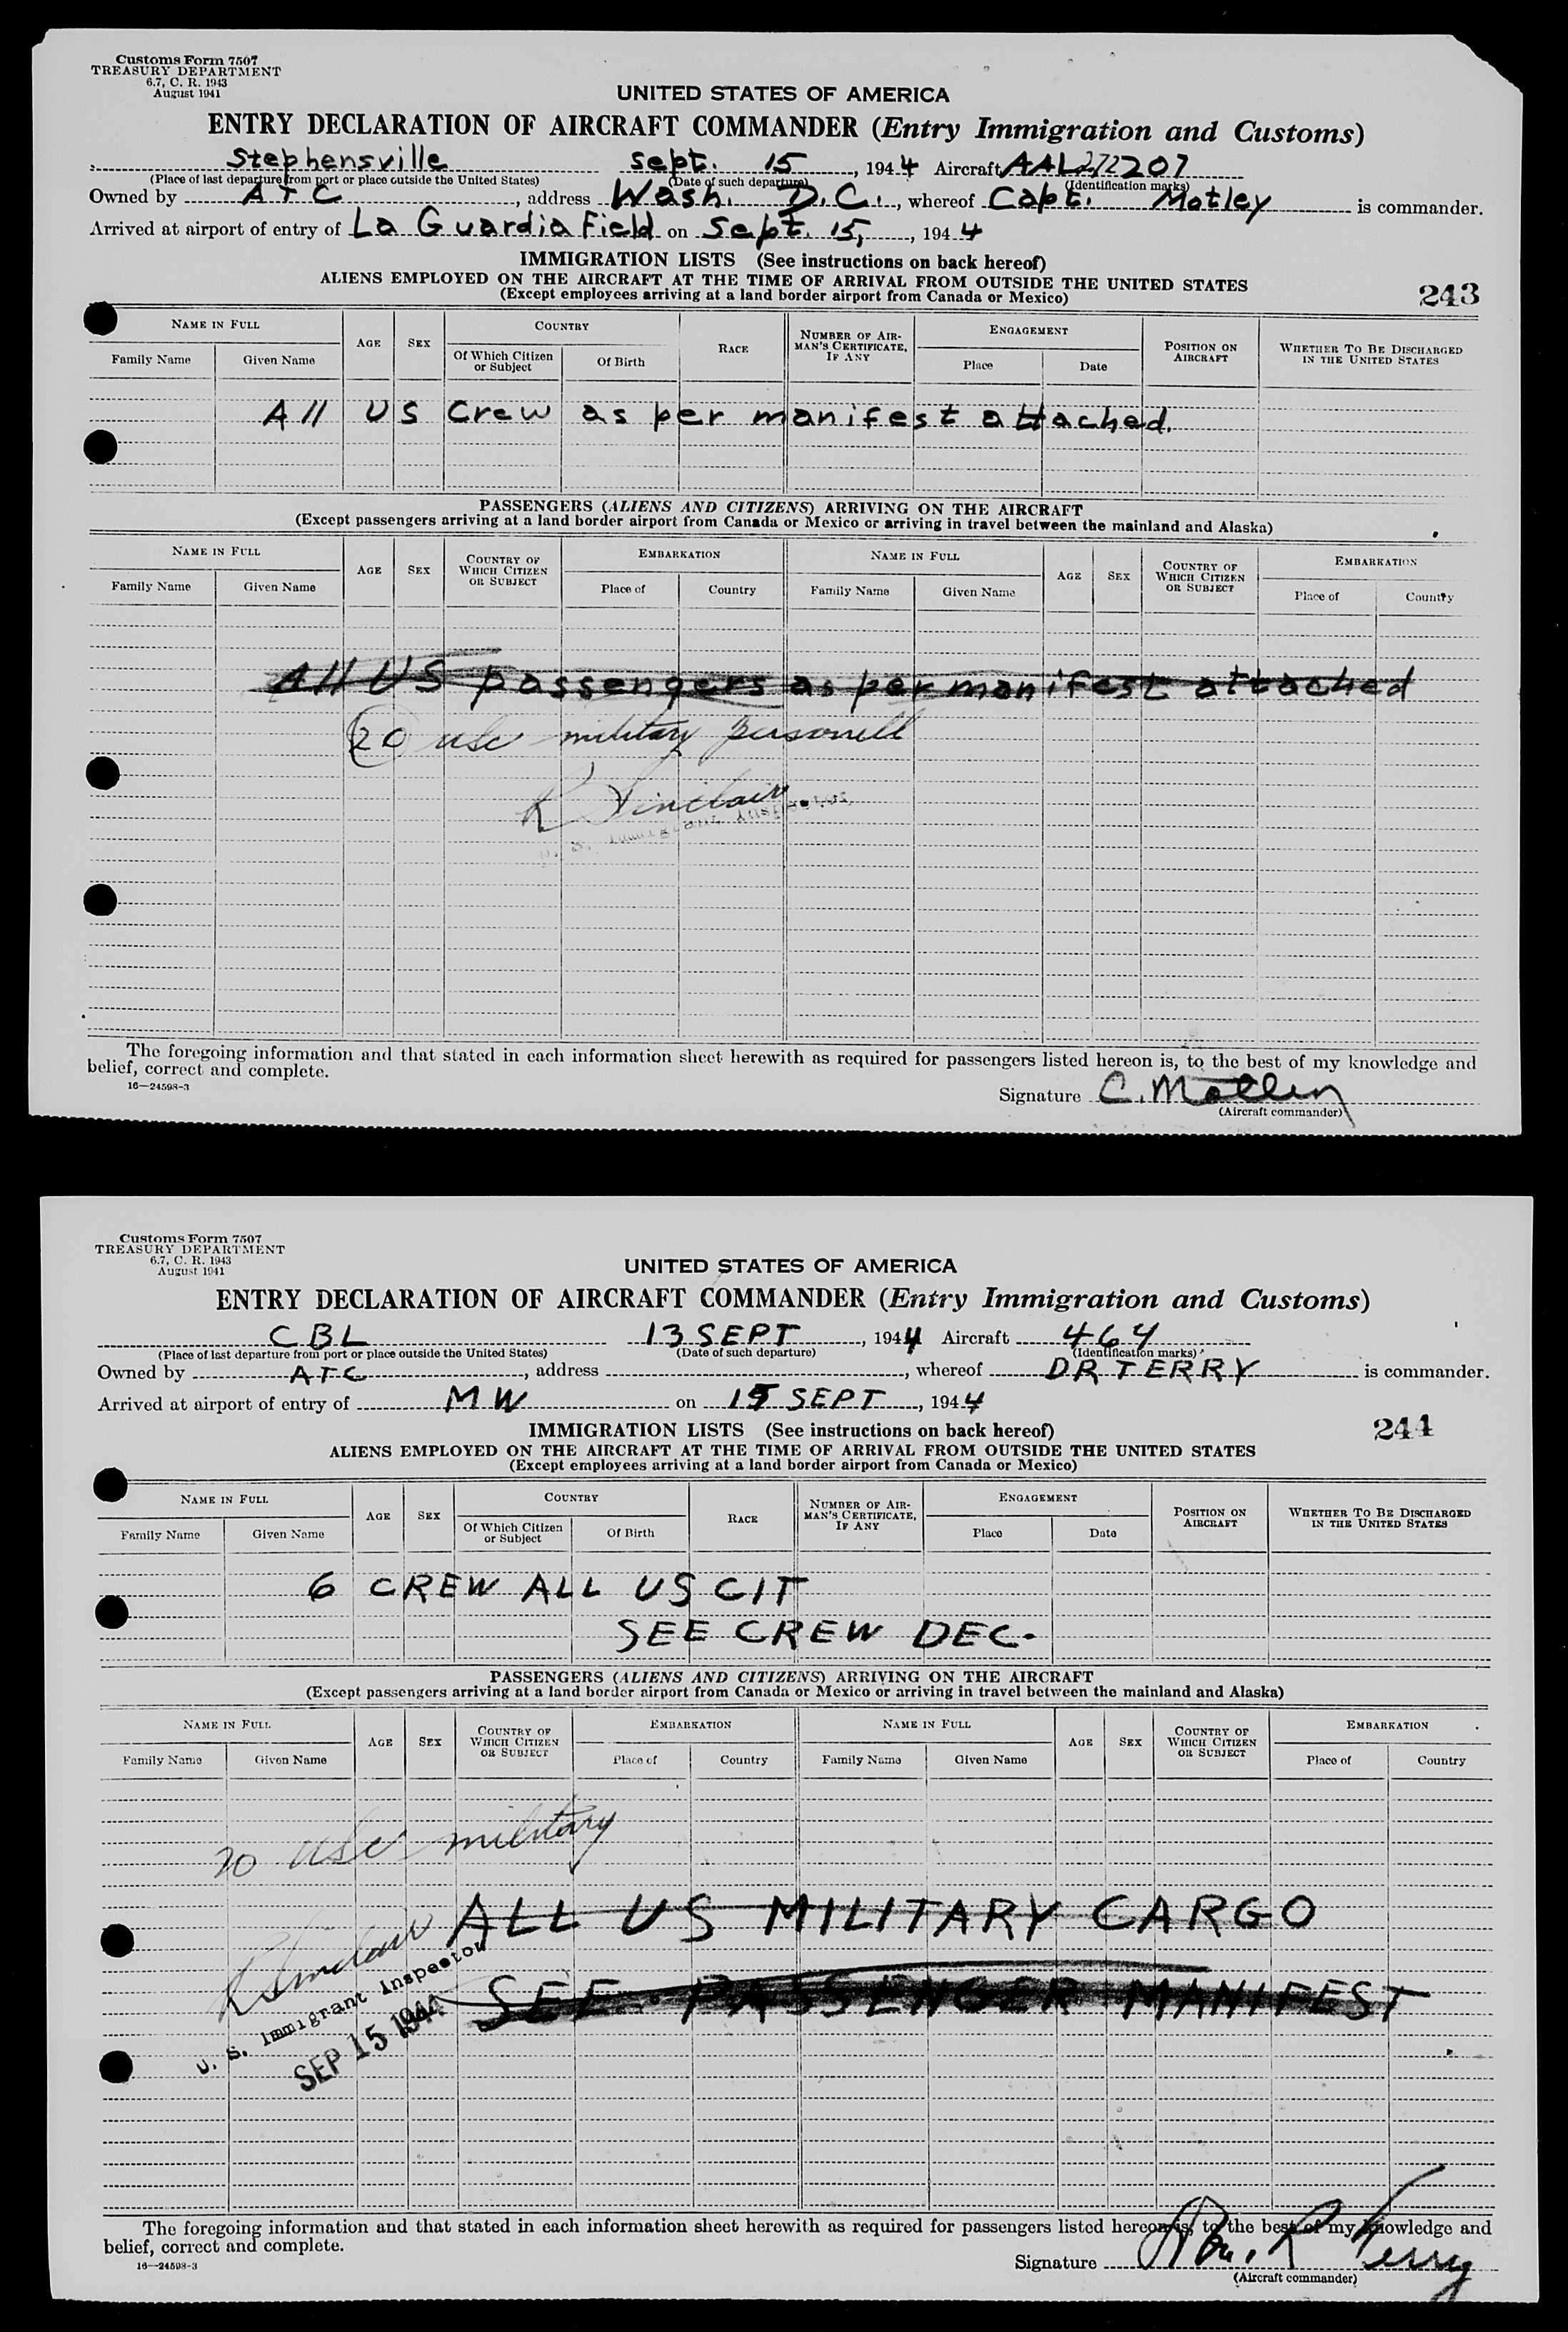 Customs Form 7507
TREASURY DEPARTMENT
6.7, C. R. 1943
August 1941
UNITED STATES OF AMERICA
ENTRY DECLARATION OF AIRCRAFT COMMANDER (Entry Immigration and Customs)
Stephensville sept. 15, 1944 Aircraft AAL 272207
(Place of last departure from port or place outside the United States) (Date of such departure) (Identification marks)
Owned by ATC, address Wash. D.C., whereof Capt. Motley is commander.
Arrived at airport of entry of La Guardia Field on Sept. 15, 1944
IMMIGRATION LISTS (See instructions on back hereof)
ALIENS EMPLOYED ON THE AIRCRAFT AT THE TIME OF ARRIVAL FROM OUTSIDE THE UNITED STATES
(Except employees arriving at a land border airport from Canada or Mexico)
243
NAME IN FULL AGE SEX COUNTRY RACE NUMBER OF AIRMAN'S CERTIFICATE, IF ANY ENGAGEMENT POSITION ON AIRCRAFT WHETHER TO BE DISCHARGED IN THE UNITED STATES
Family Name Given Name Of Which Citizen or Subject Of Birth Place Date
All US Crew as per manifest attached.
PASSENGERS (ALIENS AND CITIZENS) ARRIVING ON THE AIRCRAFT
(Except passengers arriving at a land border airport from Canada or Mexico or arriving in travel between the mainland and Alaska)
NAME IN FULL AGE SEX COUNTRY OF WHICH CITIZEN OR SUBJECT EMBARKATION NAME IN FULL AGE SEX COUNTRY OF WHICH CITIZEN OR SUBJECT EMBARKATION
Family Name Given Name Place of Country Family Name Given Name Place of Country
All US passengers as per manifest attached
20 usc military personell
R Sinclair
U. S. Immigrant Inspector
The foregoing information and that stated in each information sheet herewith as required for passengers listed hereon is, to the best of my knowledge and
belief, correct and complete.
16—24598-3
Signature C. Motley
(Aircraft commander)
Customs Form 7507
TREASURY DEPARTMENT
6.7, C. R. 1943
August 1941
UNITED STATES OF AMERICA
ENTRY DECLARATION OF AIRCRAFT COMMANDER (Entry Immigration and Customs)
CBL 13 SEPT, 1944 Aircraft 464
(Place of last departure from port or place outside the United States) (Date of such departure) (Identification marks)
Owned by ATC, address , whereof DR TERRY is commander.
Arrived at airport of entry of MW on 15 SEPT, 1944
IMMIGRATION LISTS (See instructions on back hereof)
244
ALIENS EMPLOYED ON THE AIRCRAFT AT THE TIME OF ARRIVAL FROM OUTSIDE THE UNITED STATES
(Except employees arriving at a land border airport from Canada or Mexico)
NAME IN FULL AGE SEX COUNTRY RACE NUMBER OF AIRMAN'S CERTIFICATE, IF ANY ENGAGEMENT POSITION ON AIRCRAFT WHETHER TO BE DISCHARGED IN THE UNITED STATES
Family Name Given Name Of Which Citizen or Subject Of Birth Place Date
6 CREW ALL US CIT
SEE CREW DEC.
PASSENGERS (ALIENS AND CITIZENS) ARRIVING ON THE AIRCRAFT
(Except passengers arriving at a land border airport from Canada or Mexico or arriving in travel between the mainland and Alaska)
NAME IN FULL AGE SEX COUNTRY OF WHICH CITIZEN OR SUBJECT EMBARKATION NAME IN FULL AGE SEX COUNTRY OF WHICH CITIZEN OR SUBJECT EMBARKATION
Family Name Given Name Place of Country Family Name Given Name Place of Country
20 usc military
ALL US MILITARY CARGO
R Sinclair
U. S. Immigrant Inspector
SEE PASSENGER MANIFEST
SEP 15 1944
The foregoing information and that stated in each information sheet herewith as required for passengers listed hereon is, to the best of my knowledge and
belief, correct and complete.
16—24598-3
Signature Wm. R Terry
(Aircraft commander)